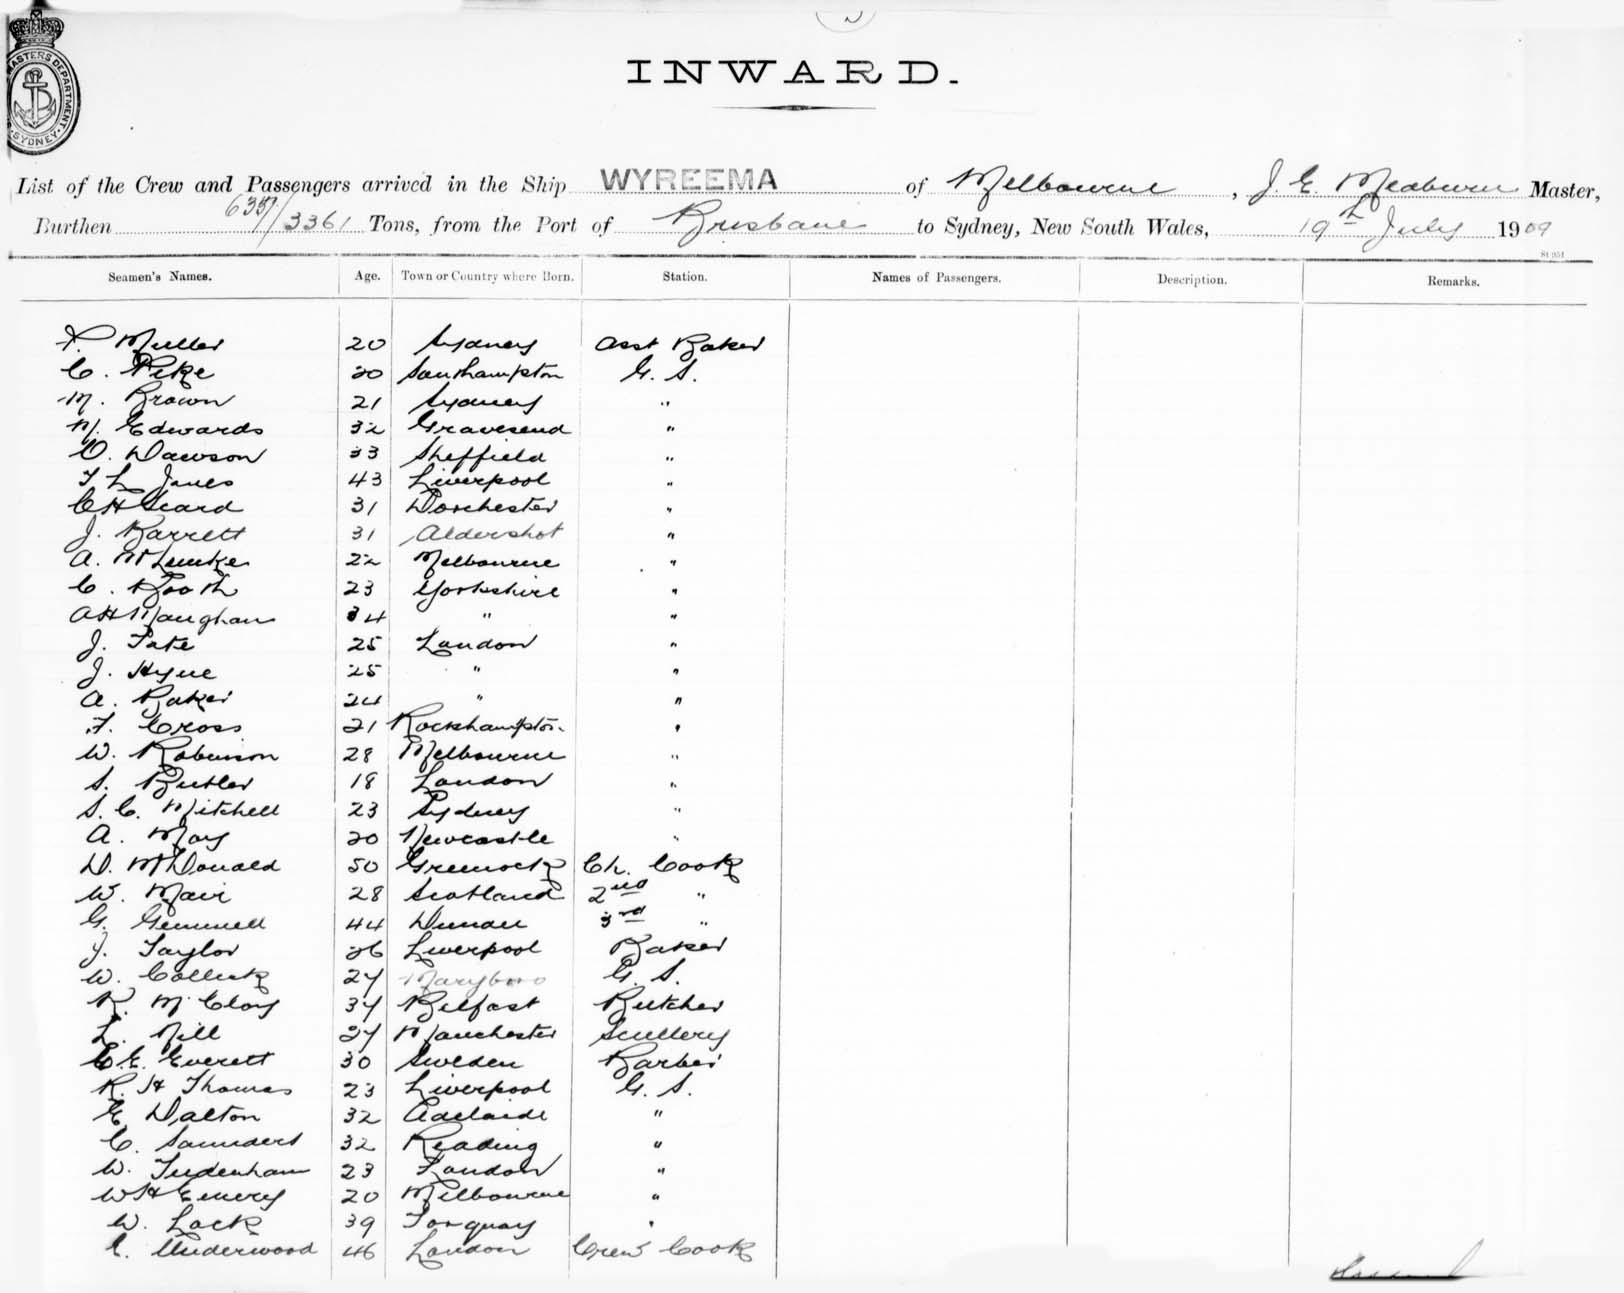 MASTERS DEPARTMENT
SYDNEY
INWARD.
List of the Crew and Passengers arrived in the Ship WYREEMA of Melbourne, J. E. Meaburn Master,
Burthen 6337/3361 Tons, from the Port of Brisbane to Sydney, New South Wales, 19th July 1909
Seamen's Names. Age. Town or Country where Born. Station. Names of Passengers. Description. Remarks.
Muller 20 Sydney Asst Baker
C. Pike 20 Southampton G. S.
M. Brown 21 Sydney "
W. Edwards 32 Gravesend "
O. Dawson 33 Sheffield "
T L Jones 43 Liverpool "
C H Seard 31 Dorchester "
J. Barrett 31 Aldershot "
A. 22 Melbourne "
C. Booth 23 Yorkshire "
A H Maughan 34 " "
J. Tate 25 London "
J. Hyne 25 " "
A. Baker 24 " "
F. Cross 21 Rockhampton "
W. Robinson 28 Melbourne "
S. Butler 18 London "
S. C. Mitchell 23 Sydney "
A. May 20 Newcastle "
D. McDonald 50 Greenock Ch. Cook
W. Mair 28 Scotland 2nd "
G. Gemmell 44 Dundee 3rd "
J. Taylor 26 Liverpool Baker
W. 27 Maryboro G. S.
R. McCloy 37 Belfast Butcher
L. Hill 27 Manchester Scullery
C. E. Everett 30 Sweden Barber
R. H Thomas 23 Liverpool G. S.
E Dalton 32 Adelaide "
C. Saunders 32 Reading "
W. Tudenham 23 London "
W H Emery 20 Melbourne "
W. Lock 39 Torquay "
C. Underwood 46 London Crew Cook